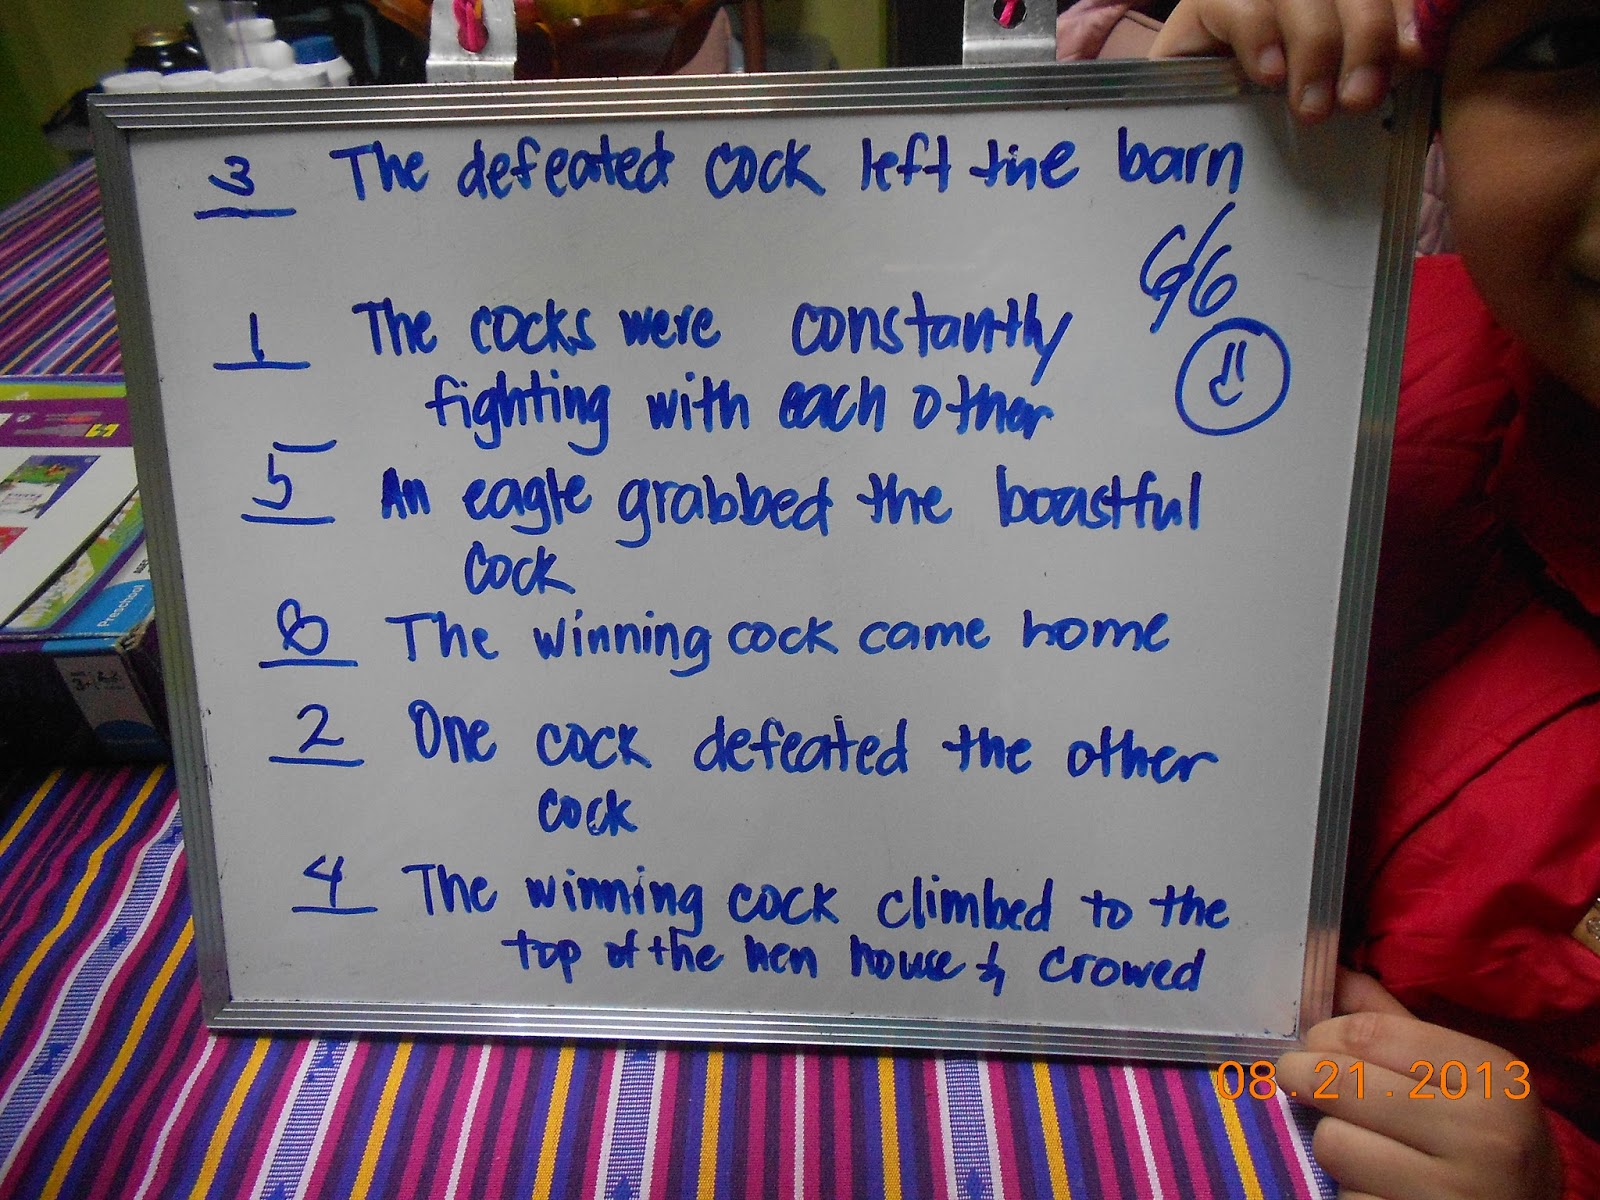 3 The defeated cock left the barn
6/6
1 The cocks were constantly
fighting with each other
5 An eagle grabbed the boastful
cock
The winning cock came home
2 One cock defeated the other
cock
4 The winning cock climbed to the
top of the hen house & crowed
Preschool
08.21.2013